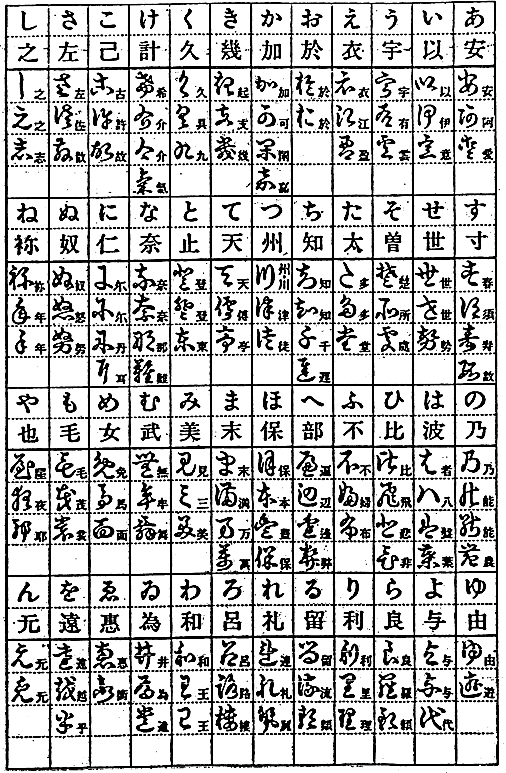 あいうえおかきくけこさし
安以宇衣於加幾久計己左之
安以宇衣於加起久希古左之
阿伊有江於可支具介許佐之
愛意雲盈閑幾九介故散志
嘉氣
すせそたちつてとなにぬね
寸世曽太知州天止奈仁奴祢
春世楚多知州川天登奈尓奴祢
須世所多知津傳登奈尓怒年
寿勢處堂千徒亭東那丹努年
数遅難耳
のはひふへほまみむめもや
乃波比不部保末美武女毛也
乃者比不遍保末見無免毛屋
能八飛婦邊本満三牟馬茂夜
能盤悲布豊万美舞面裳耶
農葉非弊保萬
ゆよらりるれろわゐゑをん
由与良利留礼呂和為恵遠元
由与良利留連呂和井恵遠元
遊与羅里流礼路王為衛越元
代理類楼王遺乎